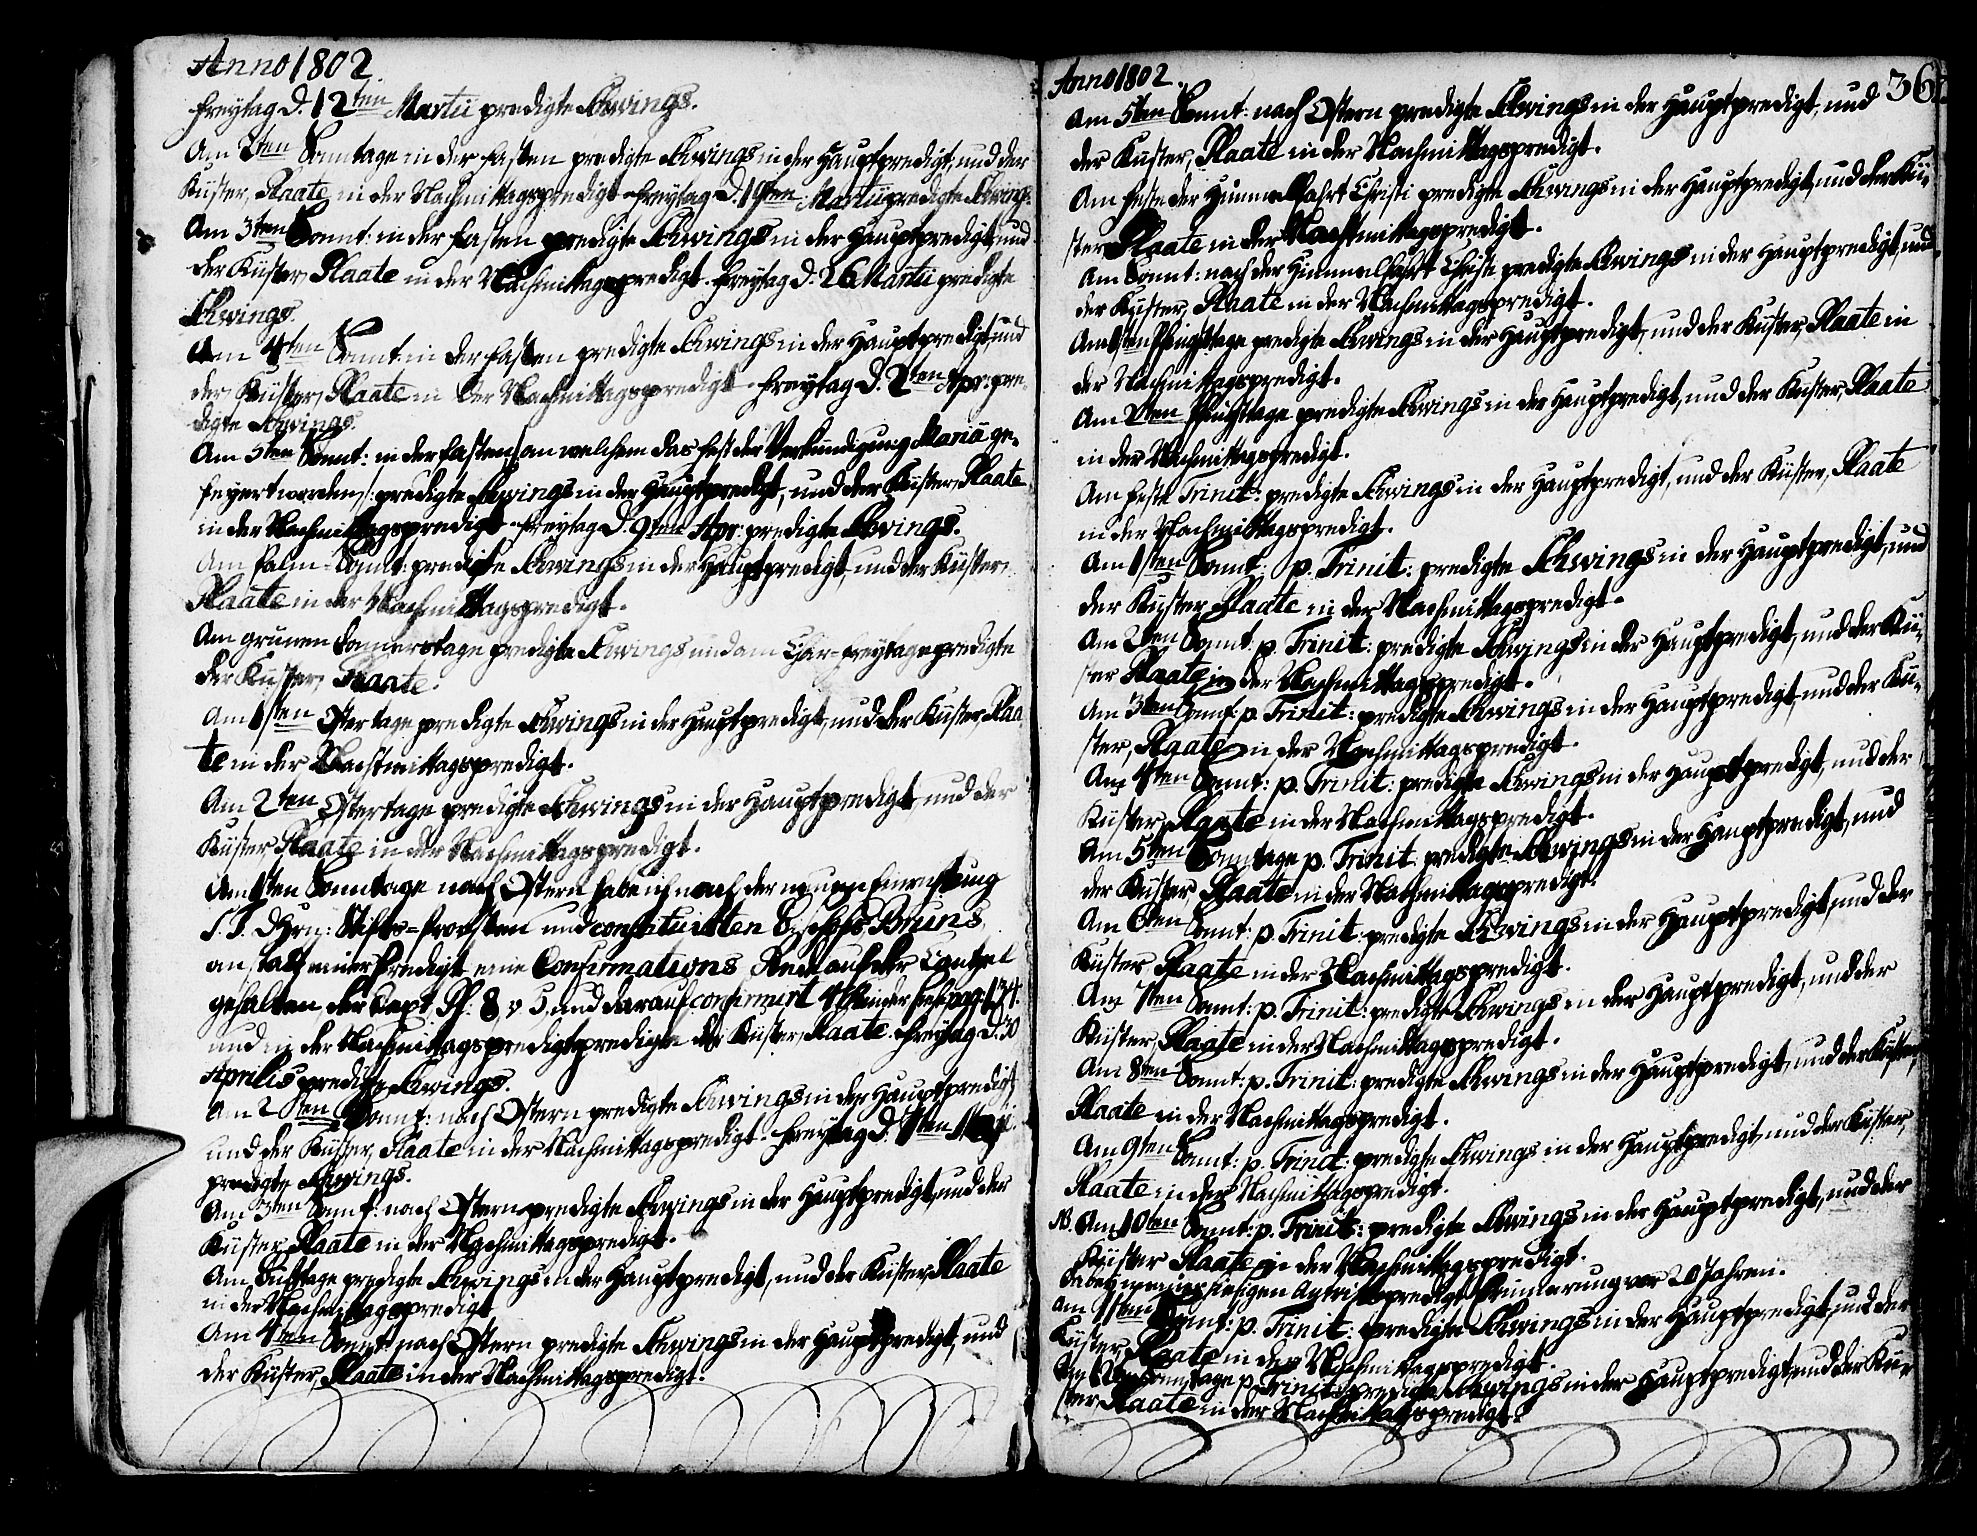 Anno 1802.
Freytag d. 12ten Martii predigte Schwings.
Am 2ten Sonntage in der Fasten predigte Schwings in der Hauptpredigt, und der
Küster, Plaate in der Nachmittagspredigt. Freytag d. 19ten Martii predigte Schwings.
Am 3ten Sonnt: in der Fasten predigte Schwings in der Hauptpredigt, und
der Küster, Plaate in der Nachmittagspredigt. Freytag d. 26 Martii predigte
Schwings.
Am 4ten Sonnt: in der Fasten predigte Schwings in der Hauptpredigt, und
der Küster, Plaate in der Nachmittagspredigt. Freytag d. 2ten Apr: pre-
digte Schwings.
Am 5ten Sonnt: in der Fasten /: an welchem das Fest der Verkündigung Mariä ge-
feyert worden, :/ predigte Schwings in der Hauptpredigt, und der Küster, Plaate
in der Nachmittagspredigt. Freytag d. 9ten Apr: predigte Schwings.
Am Palm-Sonnt: predigte Schwings in der Hauptpredigt, und der Küster,
Plaate in der Nachmittagspredigt.
Am grünen Donnerstage predigte Schwings und am Char-Freytage predigte
der Küster, Plaate.
Am 1sten Ostertage predigte Schwings in der Hauptpredigt, und der Küster, Plaa-
te in der Nachmittagspredigt.
Am 2ten Ostertage predigte Schwings in der Hauptpredigt, und der
Küster, Plaate in der Nachmittagspredigt.
Am 1sten Sonntage nach Ostern habe ich nach der neuen Einrichtung
S. T. Hrn: Stifts-Probsten und constituirten Bischofs Bruns,
anstatt einer Predigt eine Confirmations Rede auf der Cantzel
gehalten der Text Ps. 8, v 5, und darauf confirmirt 4 Kinder pag: 134.
und in der Nachmittagspredigt predigte der Küster, Plaate. Freytag d. 30
Aprilis predigte Schwings.
Am 2ten Sonnt: nach Ostern predigte Schwings in der Hauptpredigt,
und der Küster, Plaate in der Nachmittagspredigt. Freytag d. 7ten Maji
predigte Schwings.
Am 3ten Sonnt: nach Ostern predigte Schwings in der Hauptpredigt, und der
Küster, Plaate in der Nachmittagspredigt.
Am Bußtage predigte Schwings in der Hauptpredigt, und der Küster, Plaate
in der Nachmittagspredigt.
Am 4ten Sonnt: nach Ostern predigte Schwings in der Hauptpredigt, und
der Küster, Plaate in der Nachmittagspredigt.
Anno 1802.
Am 5ten Sonnt: nach Ostern predigte Schwings in der Hauptpredigt, und
der Küster, Plaate in der Nachmittagspredigt.
Am Feste der Himmelfahrt Christi predigte Schwings in der Hauptpredigt, und der Kü-
ster, Plaate in der Nachmittagspredigt.
Am Sonnt: nach der Himmelfahrt Christi predigte Schwings in der Hauptpredigt, und
der Küster, Plaate in der Nachmittagspredigt.
Am 1sten Pfingsttage predigte Schwings in der Hauptpredigt, und der Küster, Plaate in
der Nachmittagspredigt.
Am 2ten Pfingsttage predigte Schwings in der Hauptpredigt, und der Küster, Plaate
in der Nachmittagspredigt.
Am Feste Trinit: predigte Schwings in der Hauptpredigt, und der Küster, Plaate
in der Nachmittagspredigt.
Am 1sten Sonnt: p. Trinit: predigte Schwings in der Hauptpredigt, und
der Küster, Plaate in der Nachmittagspredigt.
Am 2ten Sonnt: p. Trinit: predigte Schwings in der Hauptpredigt, und der Kü-
ster Plaate in der Nachmittagspredigt.
Am 3ten Sonnt: p. Trinit: predigte Schwings in der Hauptpredigt, und der Kü-
ster, Plaate in der Nachmittagspredigt.
Am 4ten Sonnt: p. Trinit: predigte Schwings in der Hauptpredigt, und der
Küster, Plaate in der Nachmittagspredigt.
Am 5ten Sonntage p. Trinit: predigte Schwings in der Hauptpredigt, und
der Küster, Plaate in der Nachmittagspredigt.
Am 6ten Sonnt: p. Trinit: predigte Schwings in der Hauptpredigt, und der
Küster, Plaate in der Nachmittagspredigt.
Am 7ten Sonnt: p. Trinit: predigte Schwings in der Hauptpredigt, und der
Küster, Plaate in der Nachmittagspredigt.
Am 8ten Sonnt: p. Trinit: predigte Schwings in der Hauptpredigt, und der Küster,
Plaate in der Nachmittagspredigt.
Am 9ten Sonnt: p. Trinit: predigte Schwings in der Hauptpredigt, und der Küster,
Plaate in der Nachmittagspredigt.
NB. Am 10ten Sonnt: p. Trinit: predigte Schwings in der Hauptpredigt, und der
Küster Plaate in der Nachmittagspredigt.
hiesigen Antrittspredigt Erinnerung vor 20 Jahren.
Am 11ten Sonnt: p. Trinit: predigte Schwings in der Hauptpredigt, und der
Küster, Plaate in der Nachmittagspredigt.
Am 12ten Sonntage p. Trinit: predigte Schwings in der Hauptpredigt, und der Kü-
ster, Plaate in der Nachmittagspredigt.